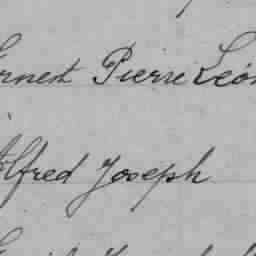 Ernest Pierre Léon
Alfred Joseph